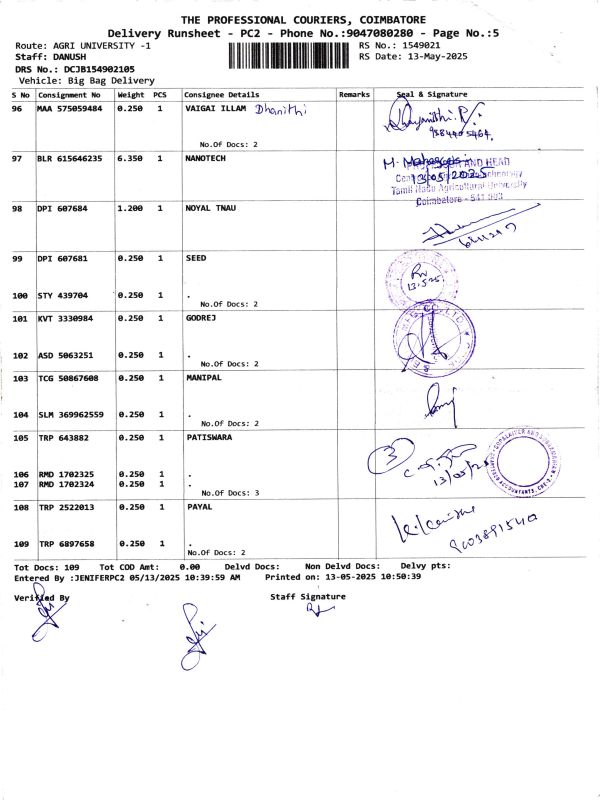 THE PROFESSIONAL COURIERS, COIMBATORE
Delivery Runsheet - PC2 - Phone No.:9047080280 - Page No.:5
Route: AGRI UNIVERSITY -1 RS No.: 1549021
Staff: DANUSH RS Date: 13-May-2025
DRS No.: DCJB154902105
Vehicle: Big Bag Delivery
S No Consignment No Weight PCS Consignee Details Remarks Seal & Signature
96 MAA 575059484 0.250 1 VAIGAI ILLAM Dhanithi
No.Of Docs: 2
97 BLR 615646235 6.350 1 NANOTECH
AND HEAD
13/05/2025
Tamil Nadu Agricultural University
Coimbatore - 641 003
98 DPI 607684 1.200 1 NOYAL TNAU
99 DPI 607681 0.250 1 SEED
13.5.25
100 STY 439704 0.250 1 .
No.Of Docs: 2
101 KVT 3330984 0.250 1 GODREJ
102 ASD 5063251 0.250 1 .
No.Of Docs: 2
103 TCG 50867608 0.250 1 MANIPAL
104 SLM 369962559 0.250 1 .
No.Of Docs: 2
105 TRP 643882 0.250 1 PATISWARA
3
13/05/25
106 RMD 1702325 0.250 1 .
107 RMD 1702324 0.250 1 .
No.Of Docs: 3
108 TRP 2522013 0.250 1 PAYAL
109 TRP 6897658 0.250 1 .
No.Of Docs: 2
Tot Docs: 109 Tot COD Amt: 0.00 Delvd Docs: Non Delvd Docs: Delvy pts:
Entered By :JENIFERPC2 05/13/2025 10:39:59 AM Printed on: 13-05-2025 10:50:39
Verified By Staff Signature